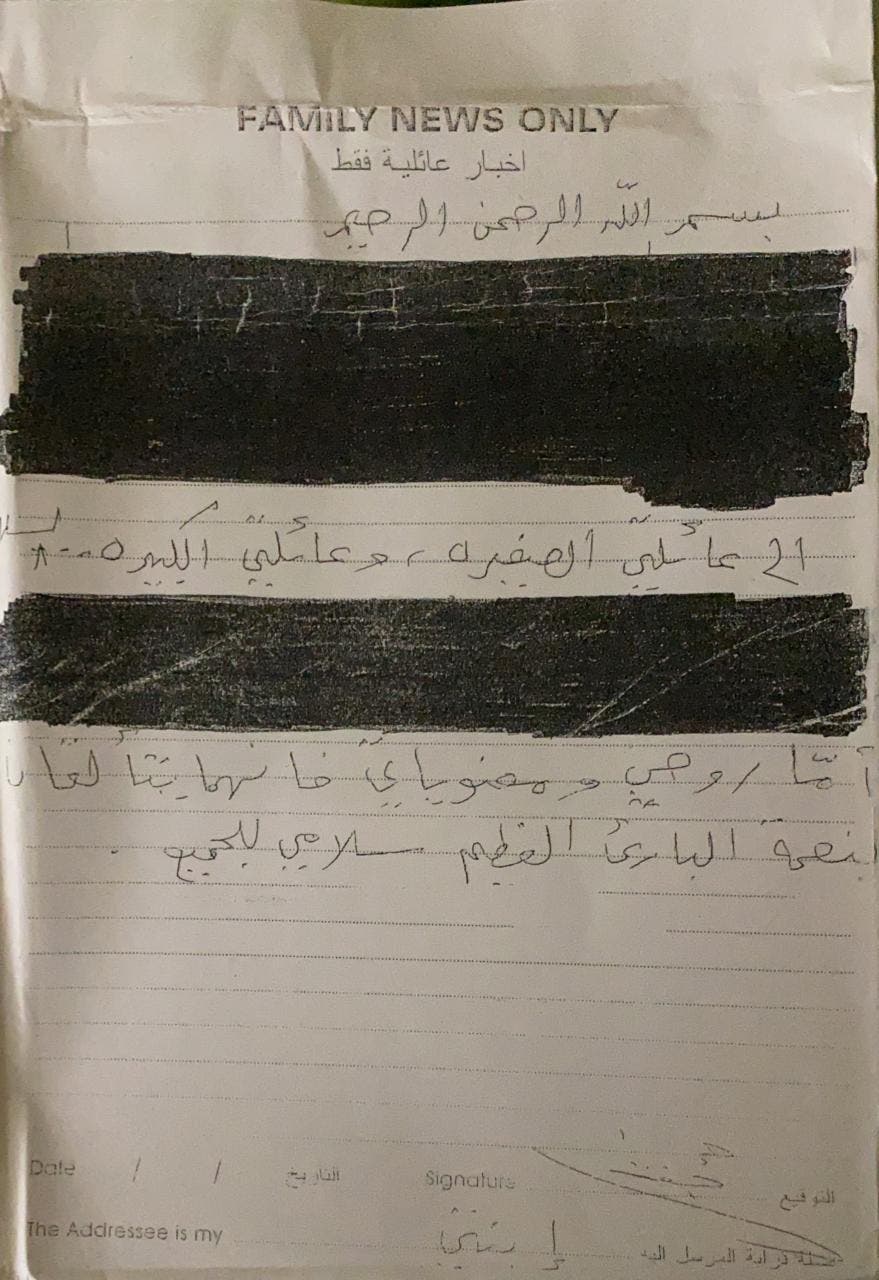 FAMILY NEWS ONLY
اخبار عائلية فقط
بسم الله الرحمن الرحيم
الى عائلتي الصغيره، وعائلتي الكبيره...
أمّا روحي ومعنوياتي فانهما يتألقان
بنعمة البارئ العظيم سلامي للجميع .
Date / / التاريخ Signature التوقيع
The Addressee is my إبنتي صلة قرابة المرسل اليه